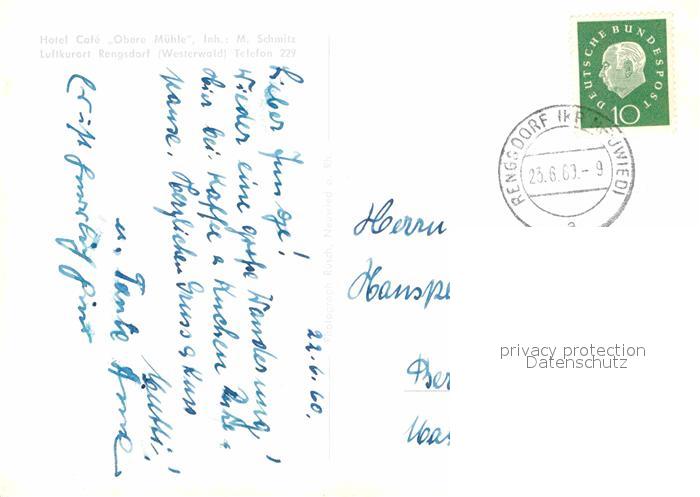 Hotel Café „Obere Mühle", Inh.: M. Schmitz
Luftkurort Rengsdorf (Westerwald) Telefon 229
22.6.60.
Lieber Junge!
Wieder eine große Wanderung!
hier bei Kaffee u Kuchen
pause. Herzlichen Gruss & Kuss
Mutti!
u. Tante
Photograph Rusch, Neuwied a. Rh.
DEUTSCHE BUNDESPOST
10
RENGSDORF (KR NEUWIED)
23.6.60.-9
a
Herrn
Hanspe
Ber
privacy protection
Datenschutz